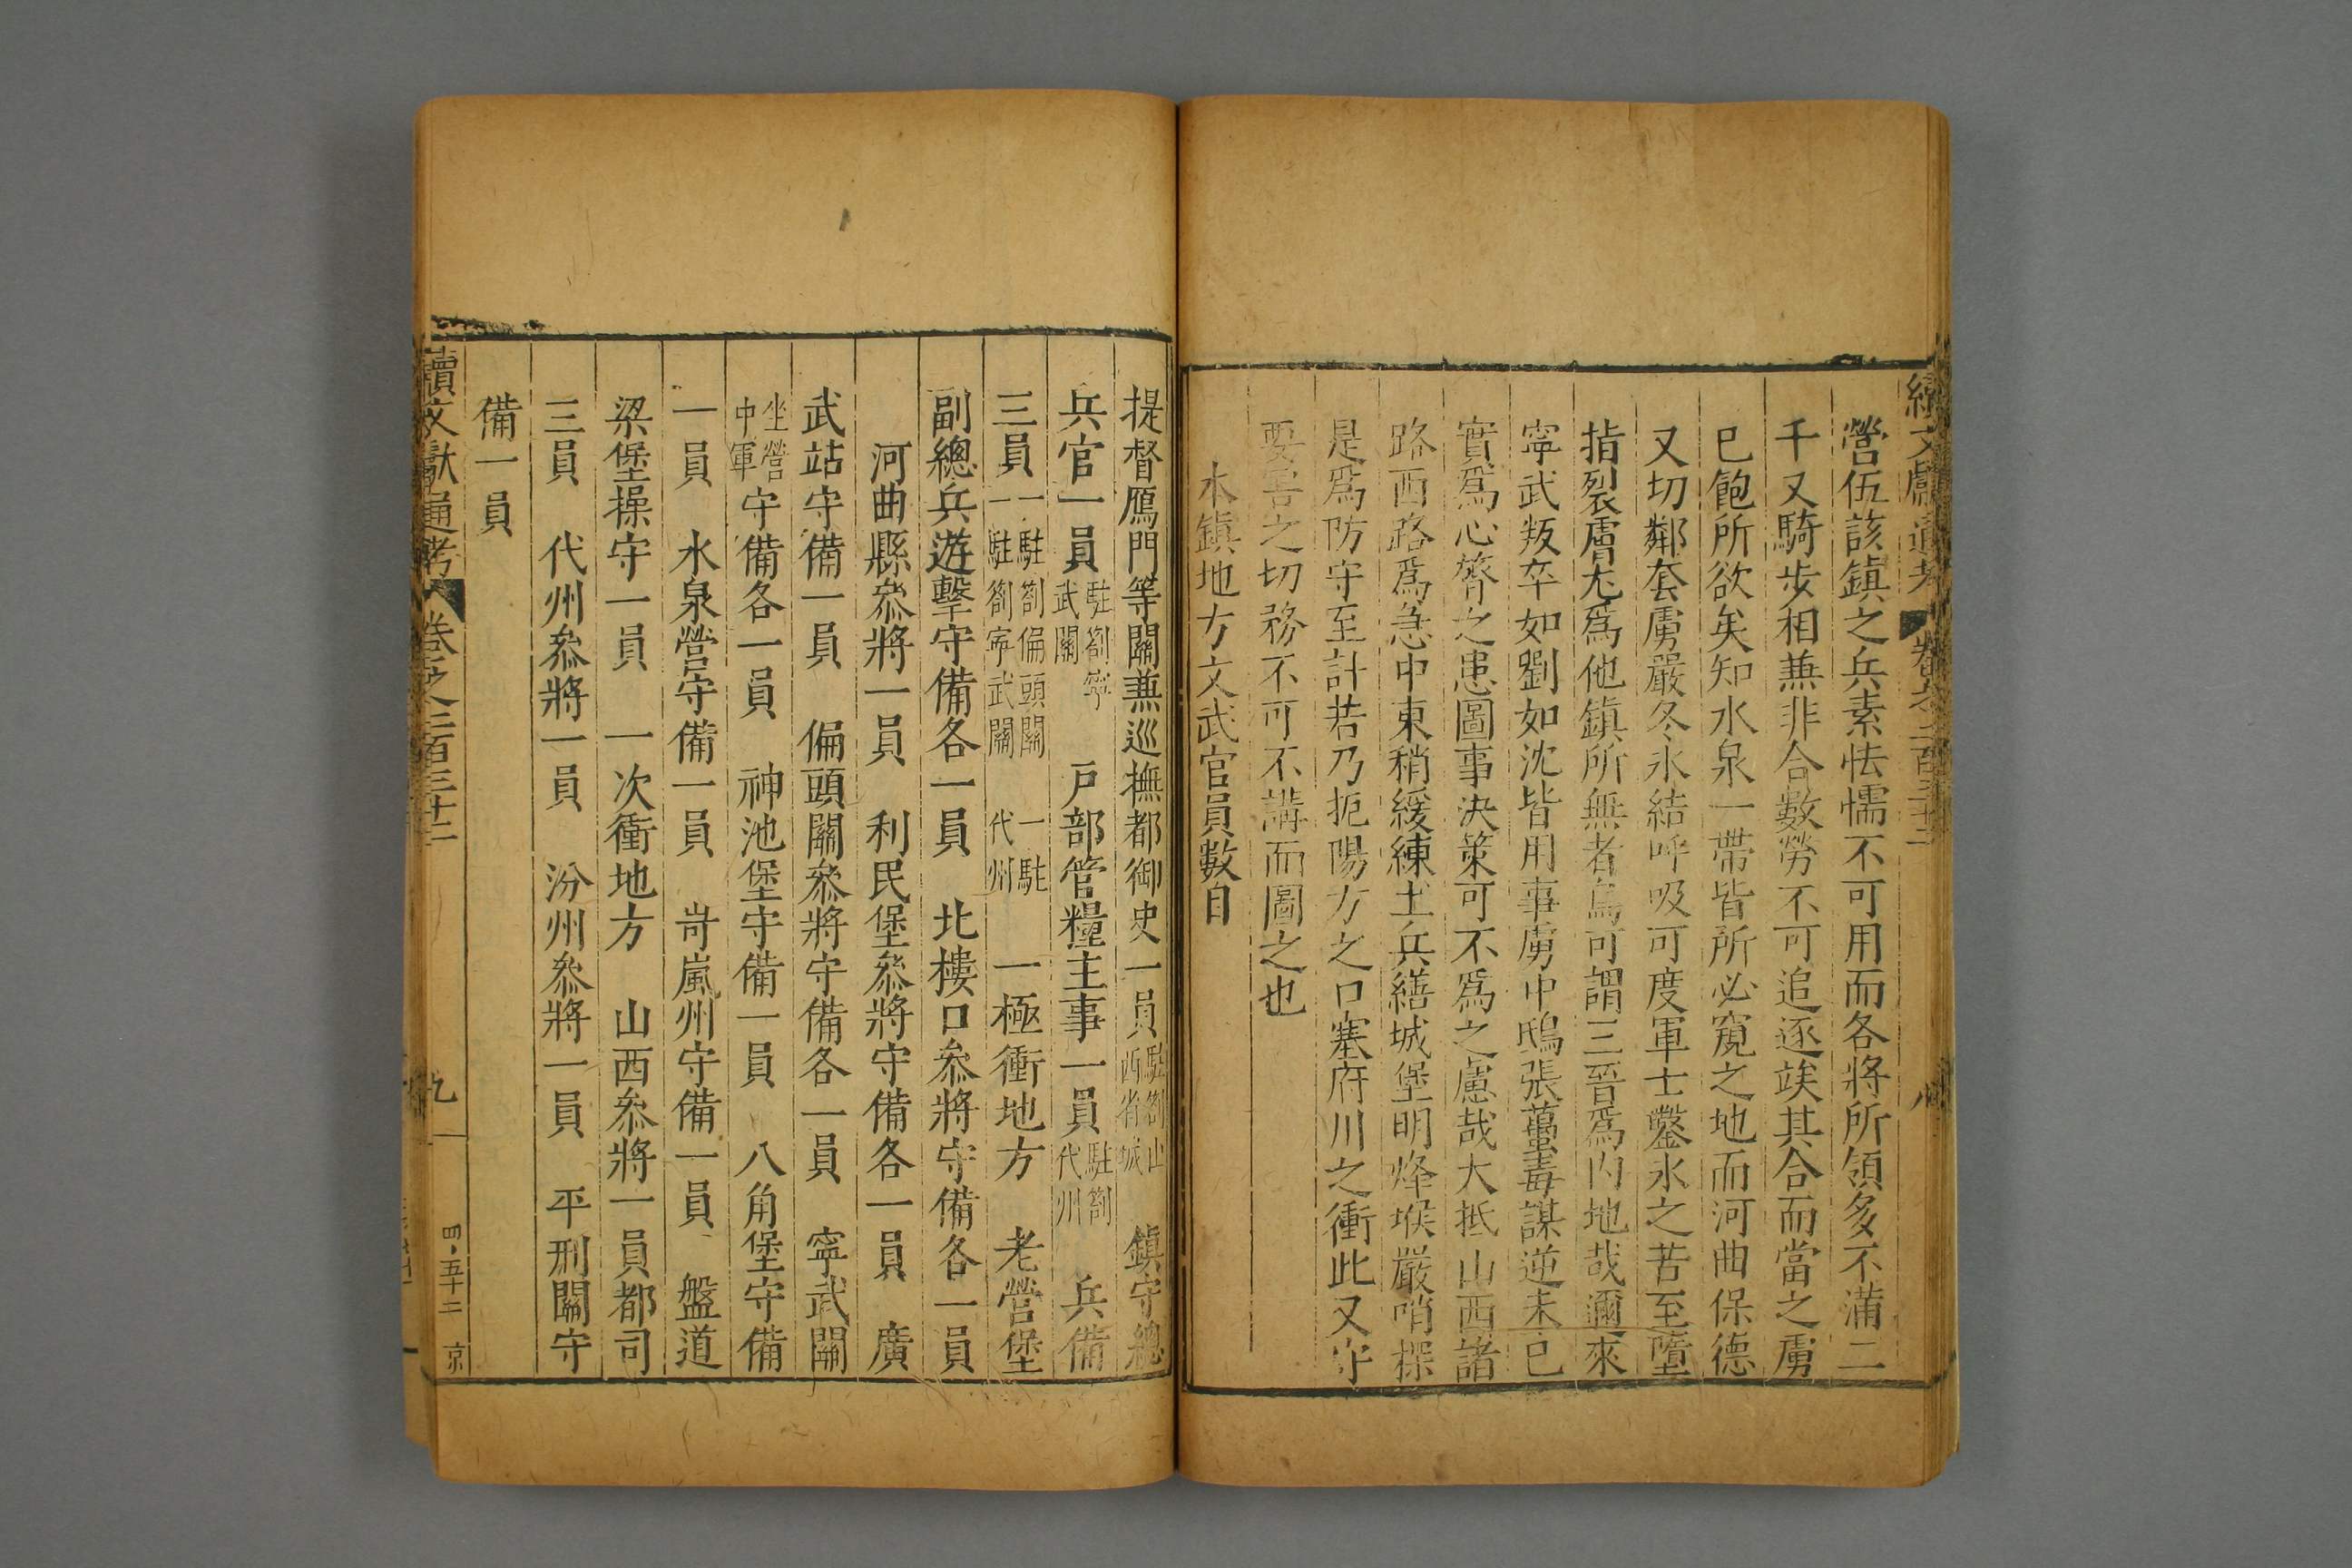 續文獻通考 卷之二百三十二 八
營伍該鎮之兵素怯懦不可用而各將所領多不滿二
千又騎步相兼非合數勞不可追逐竢其合而當之虜
已飽所欲矣知水泉一帶皆所必窺之地而河曲保德
又切鄰套虜嚴冬氷結呼吸可度軍士鑿氷之苦至墮
指裂膚尤爲他鎮所無者烏可謂三晉爲內地哉邇來
寧武叛卒如劉如沈皆用事虜中鴟張蠆毒謀逆未已
實爲心膂之患圖事決策可不爲之慮哉大抵山西諸
路西路爲急中東稍緩練土兵繕城堡明烽堠嚴哨探
是爲防守至計若乃扼陽方之口塞府川之衝此又守
要害之切務不可不講而圖之也
本鎮地方文武官員數目
提督鴈門等關兼巡撫都御史一員駐劄山西省城 鎮守總
兵官一員駐劄寧武關 戶部管糧主事一員駐劄代州 兵備
三員一駐劄偏頭關一駐劄寧武關 一駐代州 一極衝地方 老營堡
副總兵遊擊守備各一員 北樓口叅將守備各一員
河曲縣叅將一員 利民堡叅將守備各一員 廣
武站守備一員 偏頭關叅將守備各一員 寧武關
坐營中軍守備各一員 神池堡守備一員 八角堡守備
一員 水泉營守備一員 岢嵐州守備一員 盤道
梁堡操守一員 一次衝地方 山西叅將一員都司
三員 代州叅將一員 汾州叅將一員 平刑關守
備一員
續文獻通考 卷之二百三十二 九 四・五十二 京